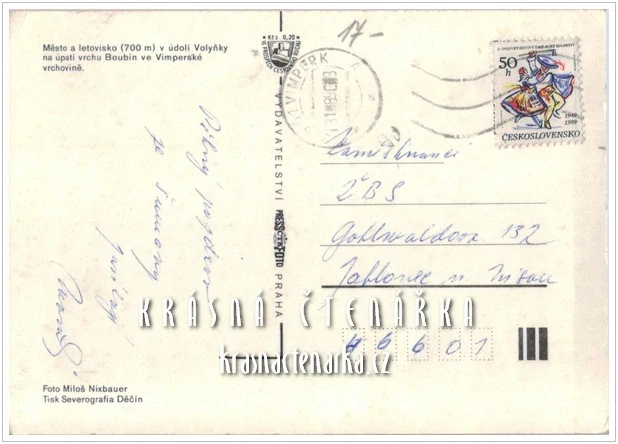 Město a letovisko (700 m) v údolí Volyňky
na úpatí vrchu Boubín ve Vimperské
vrchovině.
Kčs 0,20
17-
VIMPERK
50 h
1949
1989
ČESKOSLOVENSKO
Pěkný pozdrav
ze Šumavy
VYDAVATELSTVÍ PRESSFOTO PRAHA
Zaměstnanci
ZBS
Gottwaldova 132
Jablonec n. Nisou
46601
KRÁSNÁ ČTENÁŘKA
krasnactenarka.cz
Foto Miloš Nixbauer
Tisk Severografia Děčín